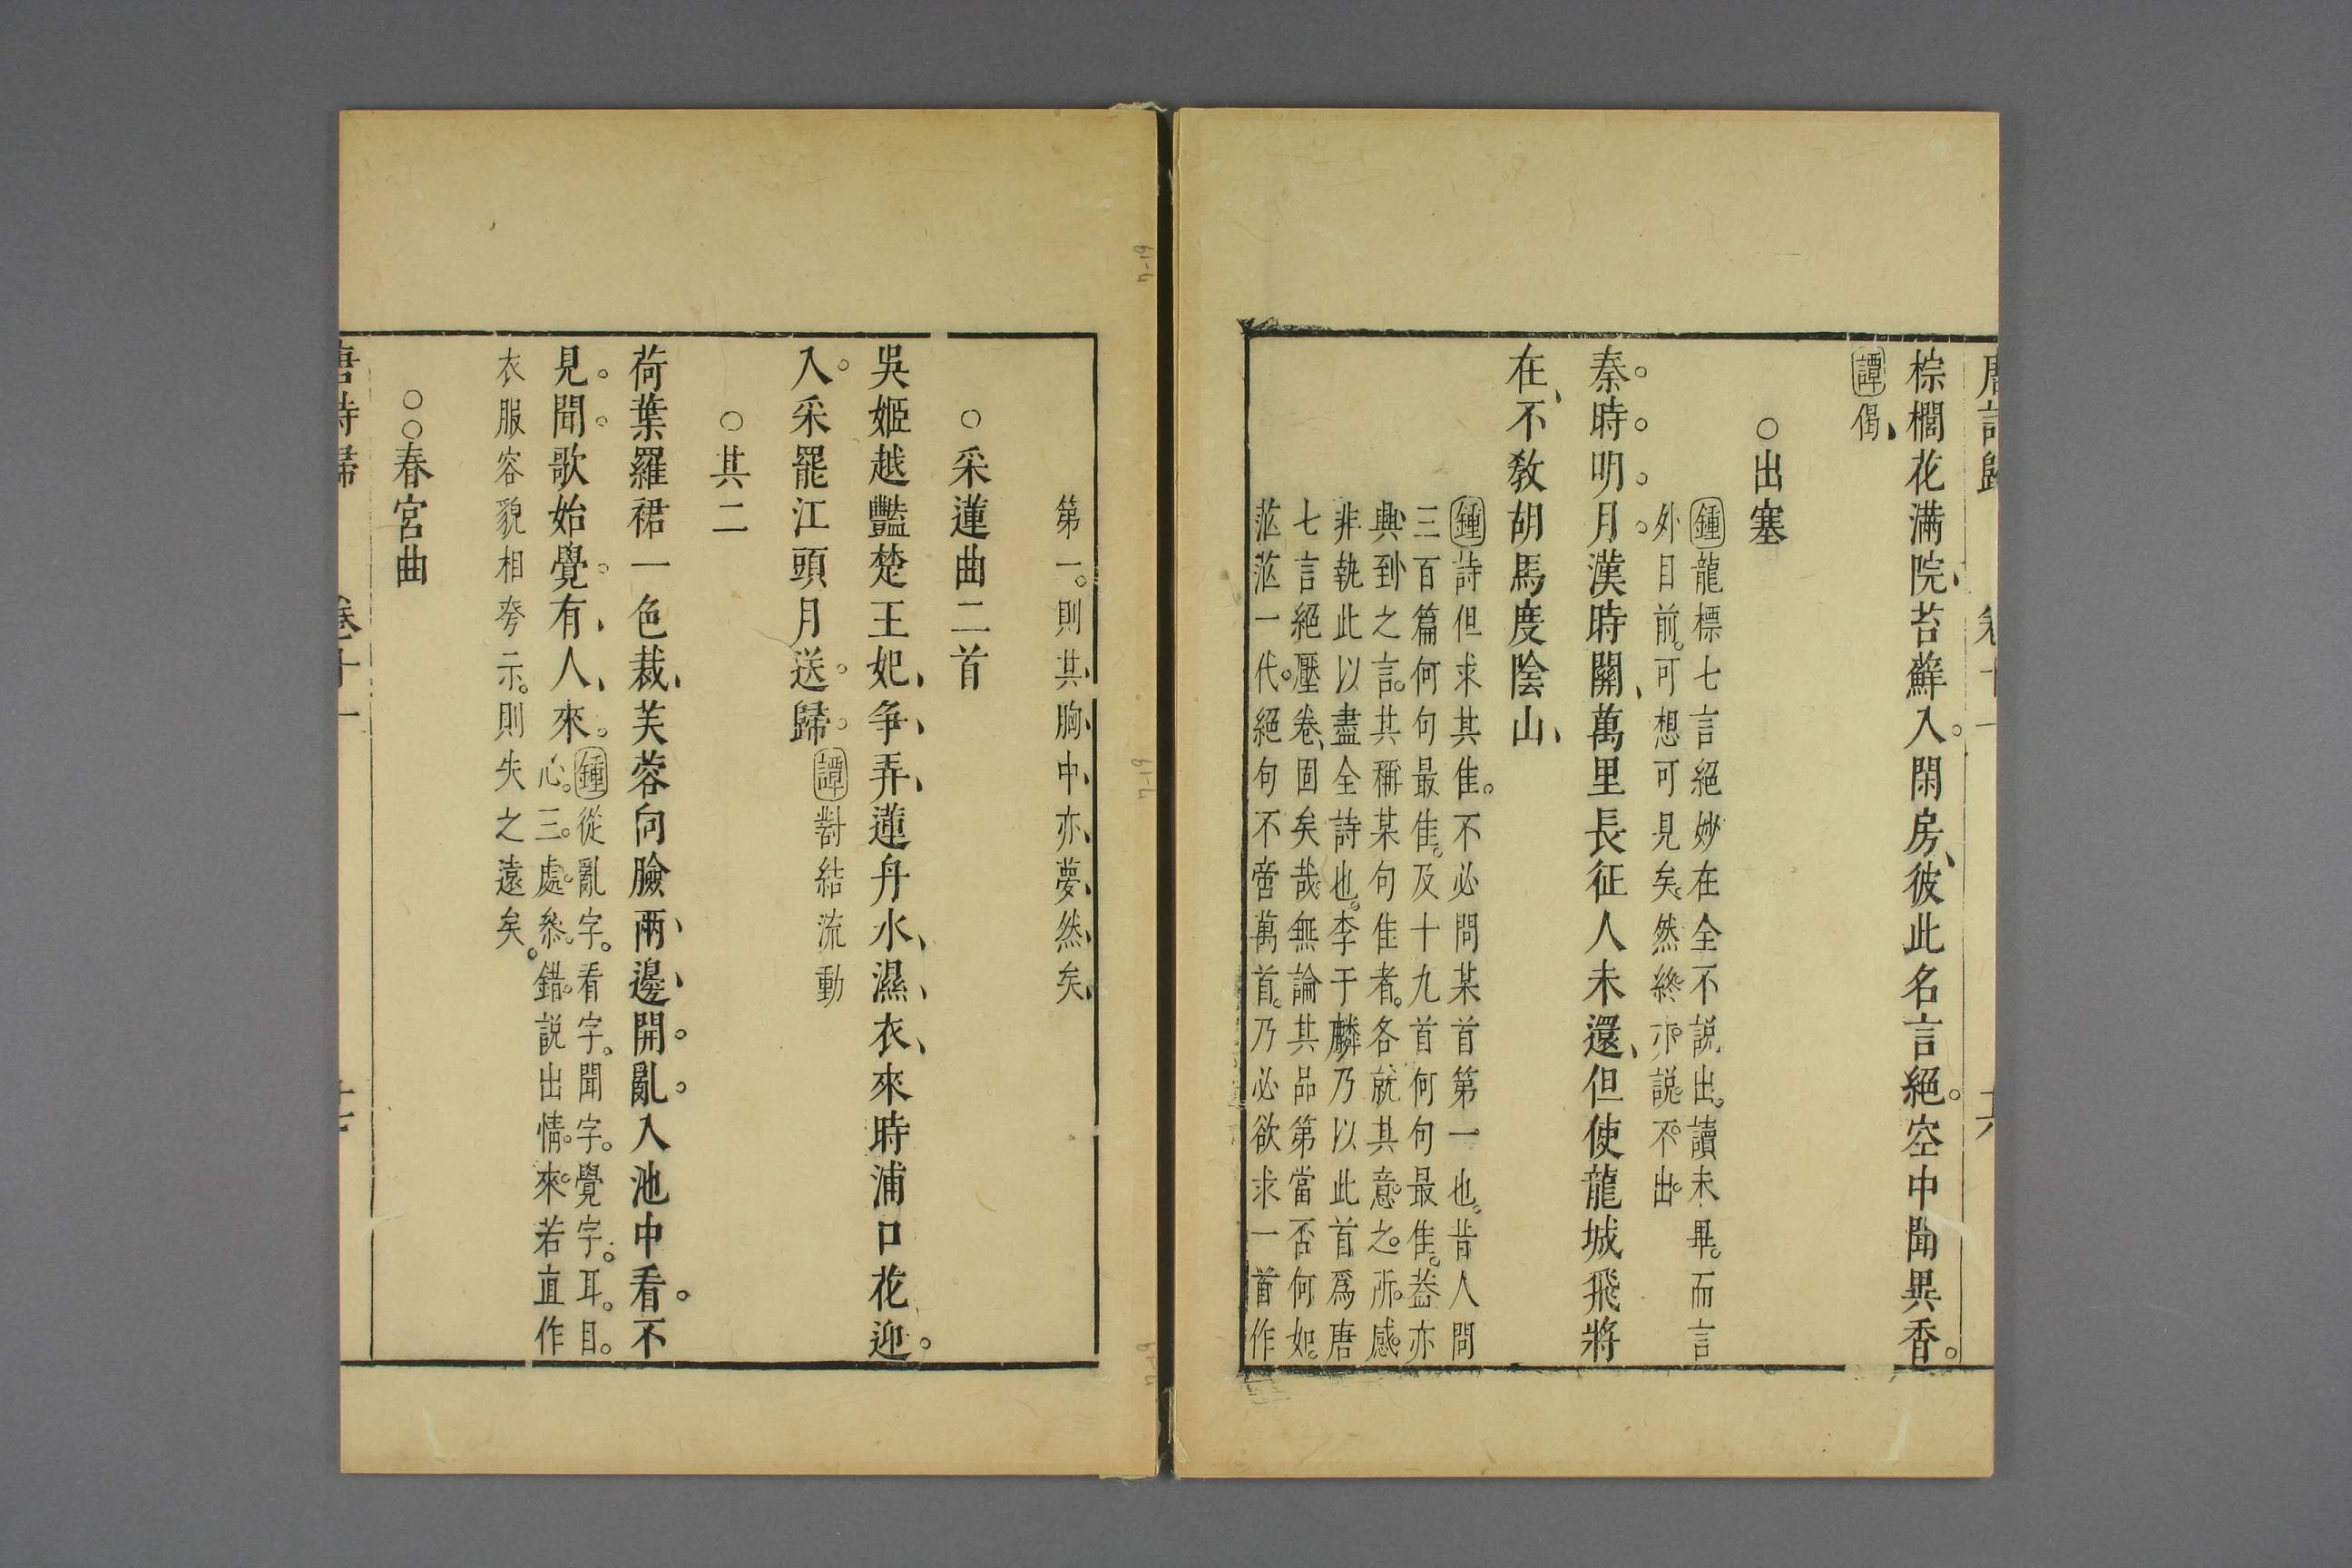 唐詩歸 卷十一 十六
椶櫚花满院苔蘚入。閑房彼此名言絕。空中聞異香。
譚偈
○出塞
鍾龍標七言絕妙在全不説出。讀未畢。而言
外目前。可想可見矣。然終亦説不出
秦。時。明。月。漢時關萬里長征人未還但使龍城飛將
在不敎胡馬度陰山
鍾詩但求其佳。不必問某首第一也。昔人問
三百篇何句最佳。及十九首何句最佳。葢亦
興到之言。其稱某句佳者。各就其意。之。所。感。
非執此以盡全詩也。李于麟乃以此首爲唐
七言絕壓卷固矣哉無論其品第當否何如。
茫茫一代。絕句不啻萬首。乃必欲求一首作
第一。則其胸中亦夢然矣
○采蓮曲二首
吳姬越豔楚王妃争弄蓮舟水濕衣來時浦口花迎。
入。采罷江頭月送。歸。譚對結流動
○其二
荷葉羅裙一色裁芙蓉向臉兩邊開。亂。入池中看。不
見。聞。歌始覺。有人來。鍾從亂字。看字。聞字。覺字。耳。目。
心。三。處。叅。錯。説出情。來。若直作
衣服容貌相夸示。則失之遠矣。
○○春宮曲
唐詩歸 卷十一 十七